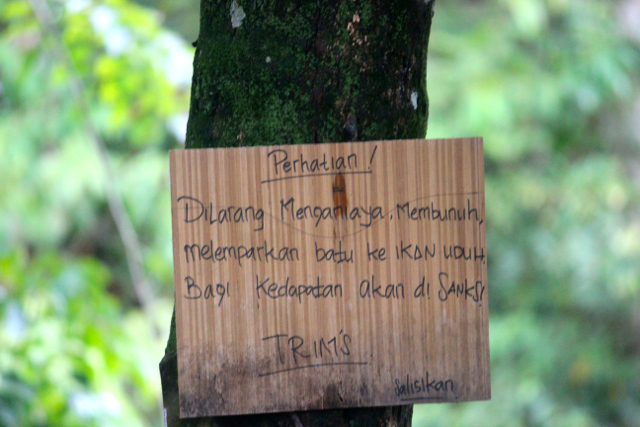 Perhatian !
Dilarang Menganiaya, Membunuh,
melemparkan batu ke IKAN UDUH.
Bagi Kedapatan akan di SANKSI
TRIM'S
Salisikan